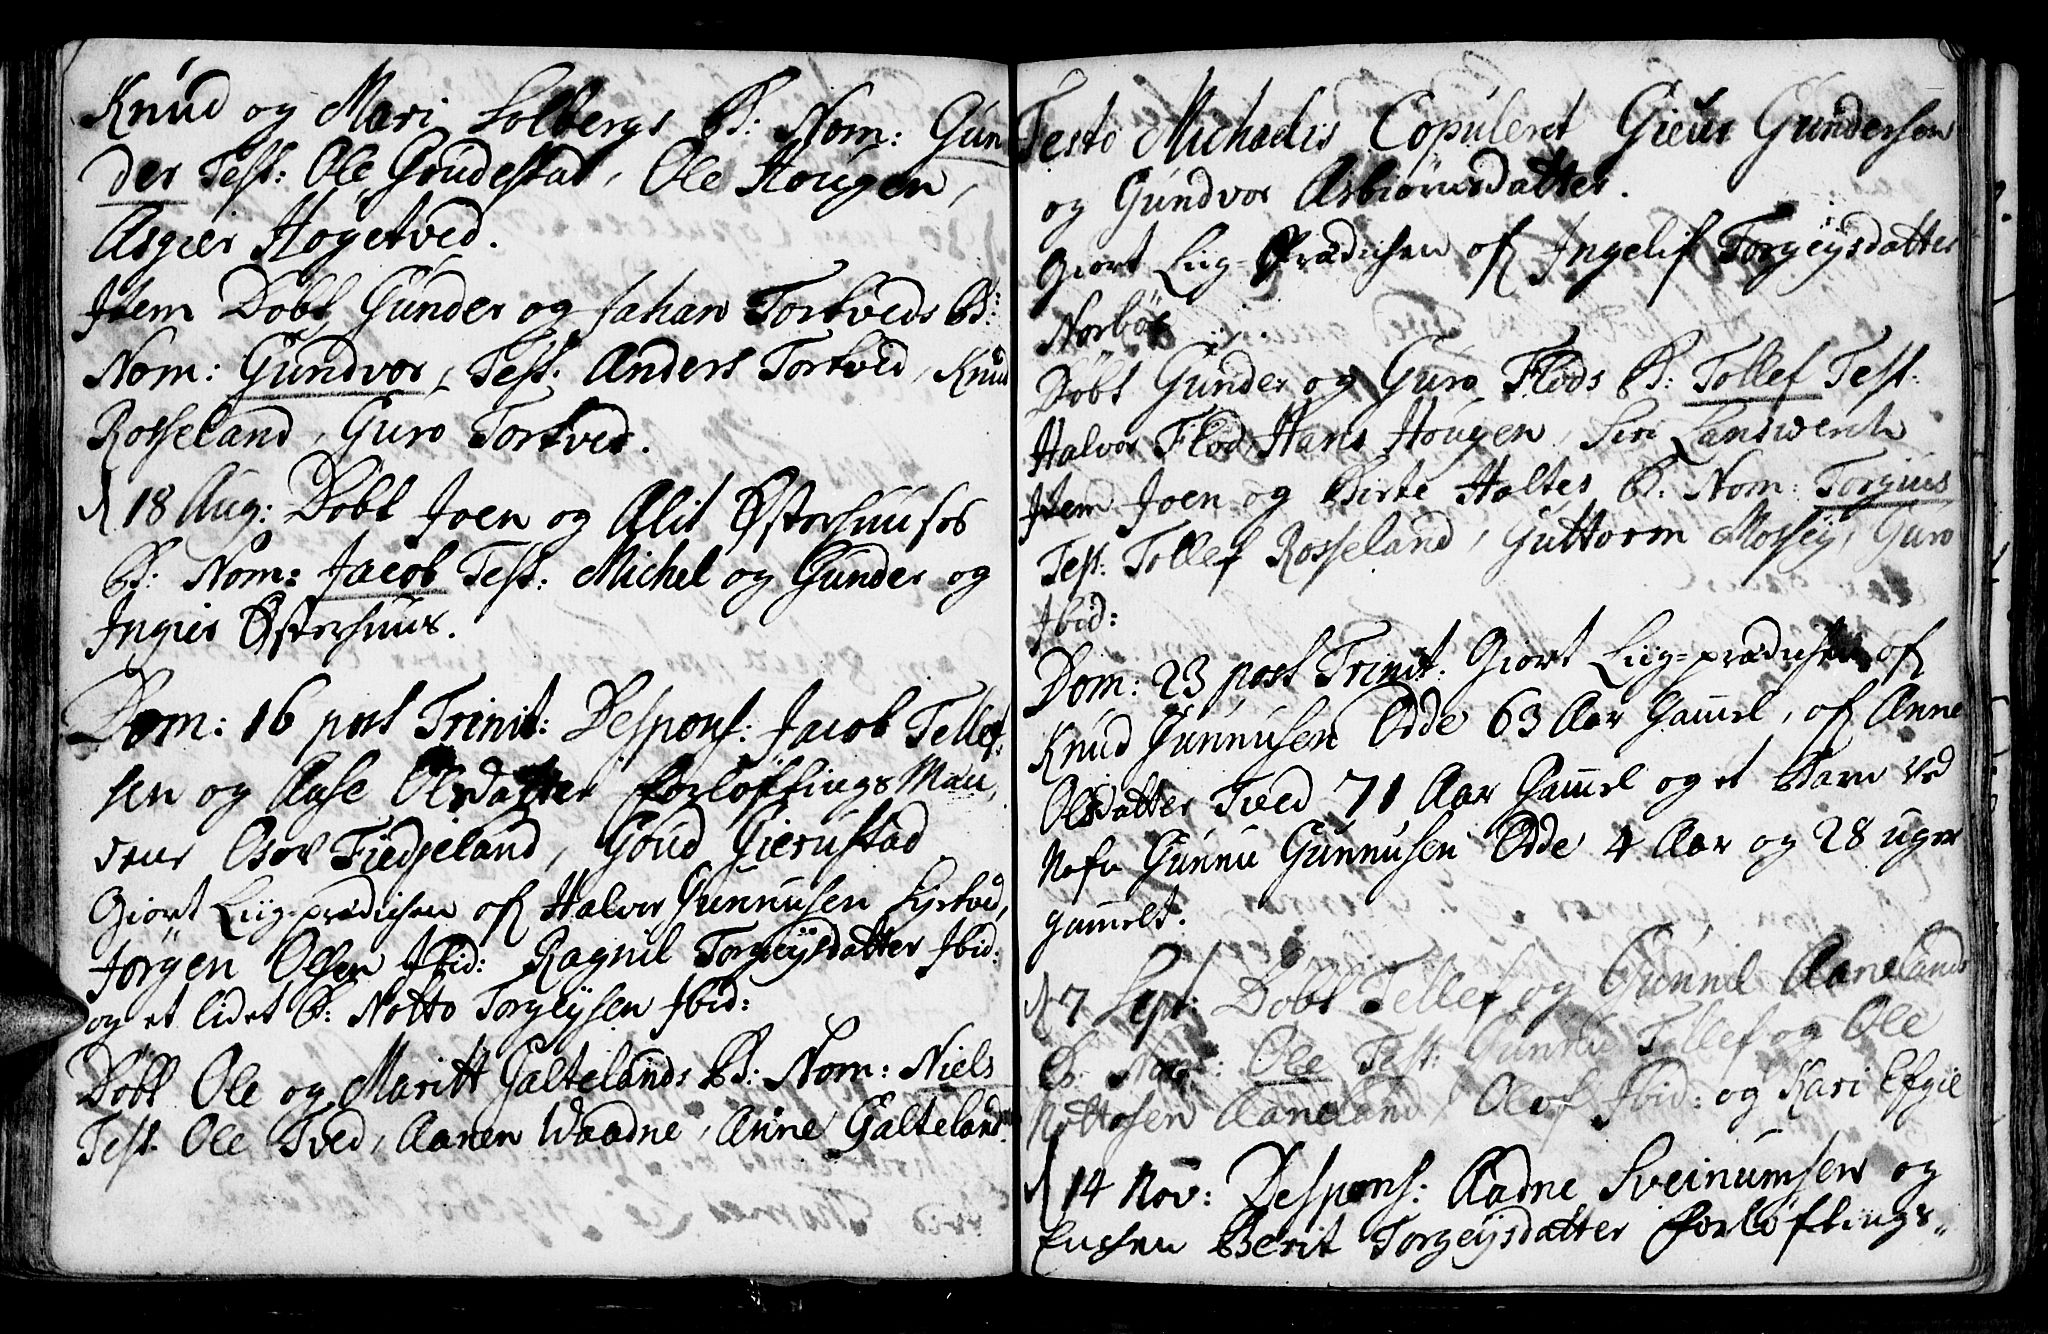 Knud og Mari Solbergs B: Nom: Gun
der Test: Ole Grudestad, Ole Hougen,
Asgier Høgetved.
Item Døbt Gunder og Johan Tortveds B:
Nom: Gundvor, Test: Anders Tortved, Knud
Rosseland, Guro Tortved.
d 18 Aug: Døbt Joen og Alit Østerhuuses
B: Nom: Jacob Test: Michel og Gunder og
Ingier Østerhuus.
Dom: 16 post Trinit: Despons: Jacob Tellef-
sen og Aase Olsdatter forløftings Mæn,
dene Osov Fiedjeland, Goud Gierustad
Giort Liig-prædichen of Halvor Gunnusen Syrtved,
Jørgen Olsen Ibid: Ragnil Torgeysdatter Ibid:
og et lidet B: Notto Torgeysen Ibid:
Døbt Ole og Maritt Galtelands B: Nom: Niels
Test. Ole Tved, Aanen Waadne, Anne Galteland.
Festo Michaelis Copuleret Gieur Gundersen
og Gundvor Asbiørnsdatter.
Giort Liig-Prædichen of Ingelif Torgeysdatter
Norbøe
Døbt Gunder og Guro Flods B: Tollef Test:
Halvor Flod, Hans Hougen, Siri Lanswerck
Item Joen og Birte Holtes B: Nom: Torgius
Test: Tollef Rosseland, Guttorm Mossey, Guro
Ibid:
Dom: 23 post Trinit. Giort Liig-prædichen of
Knud Gunnusen Odde 63 Aar Gammel, of Anne
Olsdatter Tved 71 Aar Gammel og et Barn ved
Nafn Gunnu Gunnusen Odde 4 Aar og 28 uger
gammelt.
d 7 Sept: Døbt Tellef og Gunnil Aanelands
B. Nom: Ole Test: Gunnu Tollef og Ole
Nottosen Aaneland, Olof Ibid: og Kari Efgie
d 14 Nov: Despons: Aadne Sveinumsen og
Enchen Berit Torgeysdatter forløftings-